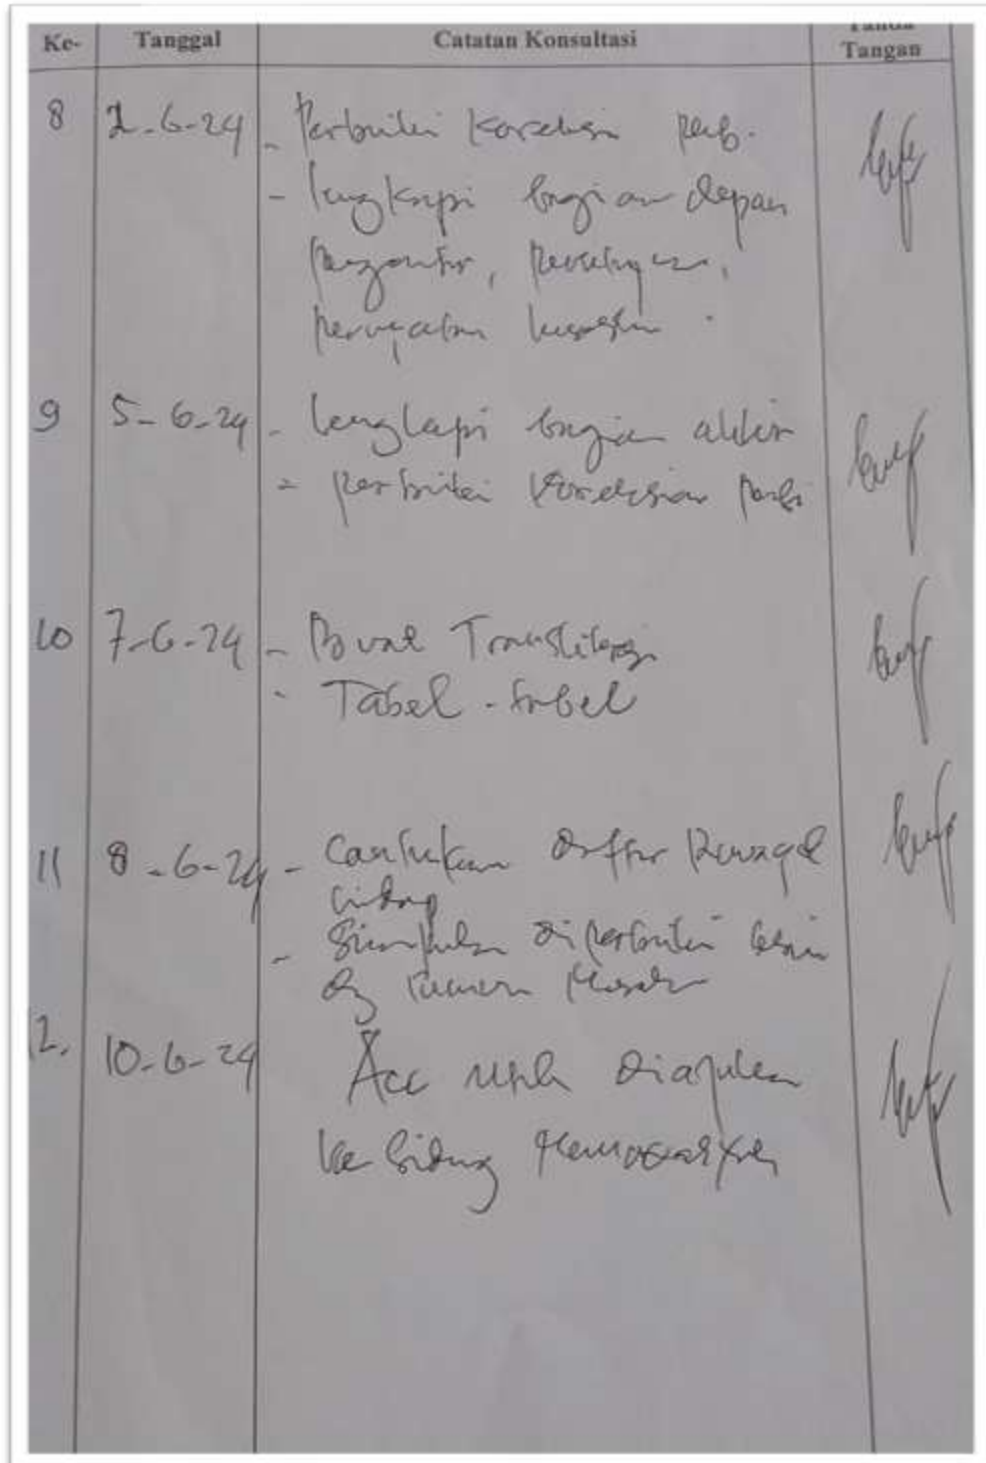 Ke- Tanggal Catatan Konsultasi Tanda Tangan
8 2-6-24 - Perbaiki Koreksian
- lengkapi bagian depan
pengantar, persetujuan,
pernyataan keaslian.
9 5-6-24 - lengkapi bagian akhir
- perbaiki Koreksian
10 7-6-24 - Buat Transliterasi
- Tabel-tabel
11 8-6-24 - Cantumkan Daftar Riwayat
hidup
- Simpulan diperbaiki
dg rumusan Masalah
12. 10-6-24 Acc untk Diajukan
ke Sidang Munaqasyah